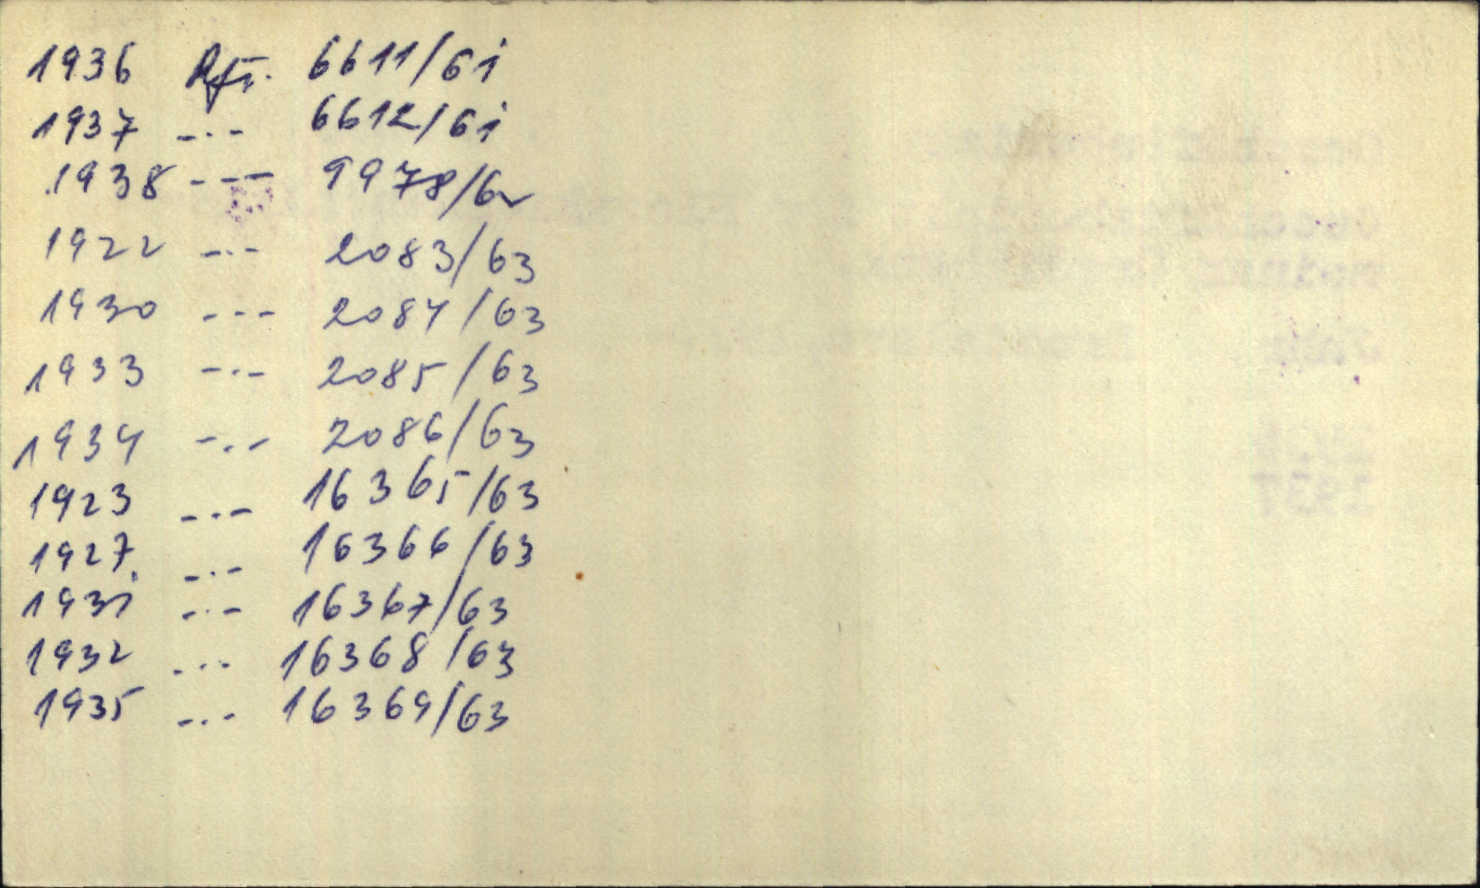 1936 Rfr. 6611/61
1937 -.- 6612/61
1938 --- 9978/62
1922 -.- 2083/63
1930 --- 2084/63
1933 -.- 2085/63
1934 -.- 2086/63
1923 -.- 16365/63
1927 -.- 16366/63
1931 -.- 16367/63
1932 -.- 16368/63
1935 -.- 16369/63